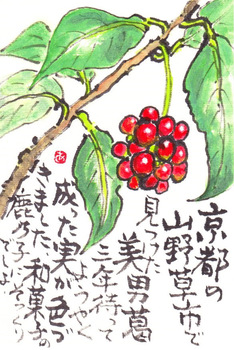 京都の
山野草市で
見つけた
美男葛
三年待って
ようやく
成った実が色づ
きました 和菓子の
鹿の子にそっくり
でしょ